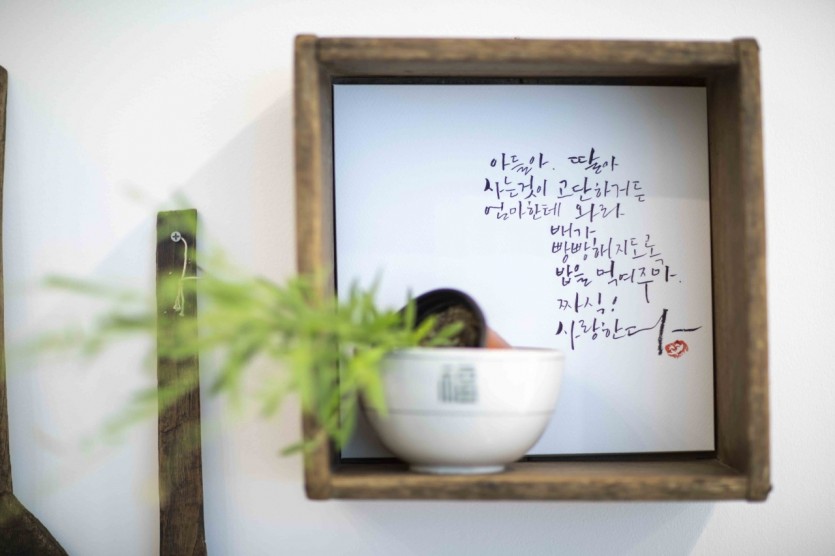 아들아. 딸아
사는것이 고단하거든
엄마한테 와라
배가
빵빵해지도록
밥을 먹여주마.
짜식!
사랑한다
福